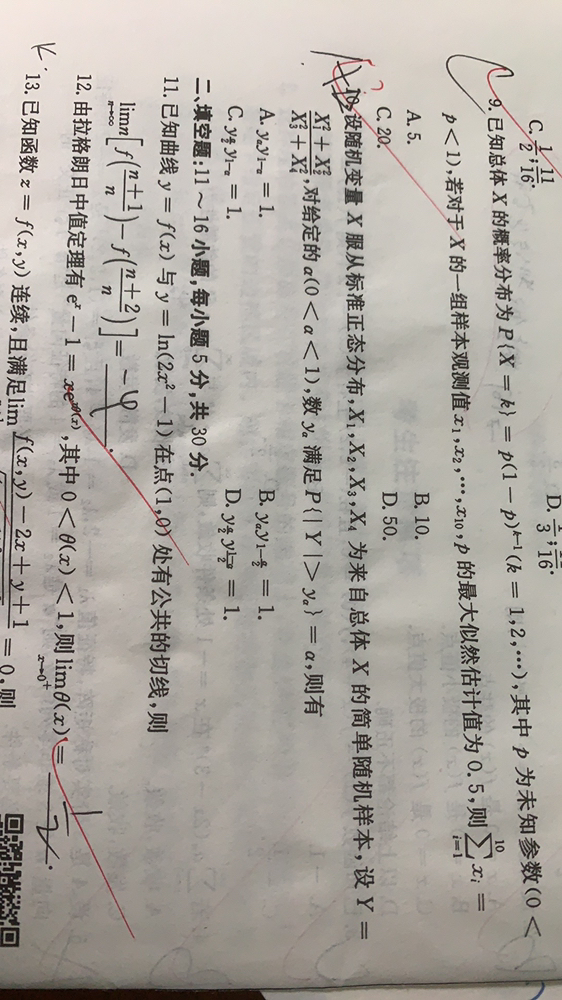 C. 1/2; 11/16
D. 1/3; /16.
9. 已知总体 X 的概率分布为 P{X = k} = p(1 − p)^{k−1}(k = 1,2,⋯),其中 p 为未知参数(0 <
p < 1),若对于 X 的一组样本观测值 x₁,x₂,⋯,x₁₀,p 的最大似然估计值为 0.5,则 ∑_{i=1}^{10} x_i =
A. 5.
B. 10.
C. 20.
D. 50.
10. 设随机变量 X 服从标准正态分布,X₁,X₂,X₃,X₄ 为来自总体 X 的简单随机样本,设 Y =
(X₁² + X₂²)/(X₃² + X₄²),对给定的 α(0 < α < 1),数 y_α 满足 P{|Y| > y_α} = α,则有
A. y_α y_{1−α} = 1.
B. y_α y_{1−α/2} = 1.
C. y_{α/2} y_{1−α} = 1.
D. y_{α/2} y_{(1−α)/2} = 1.
二、填空题:11 ~ 16 小题,每小题 5 分,共 30 分.
11. 已知曲线 y = f(x) 与 y = ln(2x² − 1) 在点(1,0) 处有公共的切线,则
lim_{n→∞} n[f((n+1)/n) − f((n+2)/n)] = −4.
12. 由拉格朗日中值定理有 e^x − 1 = xe^{xθ(x)},其中 0 < θ(x) < 1,则 lim_{x→0⁺} θ(x) = 1/2.
13. 已知函数 z = f(x,y) 连续,且满足 lim f(x,y) − 2x + y + 1 = 0,则